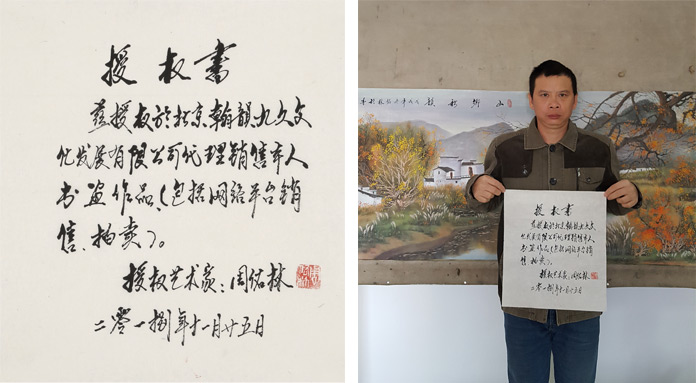 授权书
兹授权於北京翰韻九久文
化发展有限公司代理销售本人
书画作品（包括网络平台销
售、拍卖）。
授权艺术家：周林
二零一捌年十一月廿五日
授权书
兹授权於北京翰韻九久文
化发展有限公司代理销售本人
书画作品（包括网络平台销
售、拍卖）。
授权艺术家：周林
二零一捌年十一月廿五日